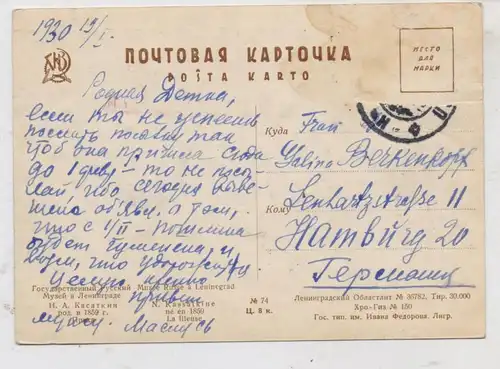 1930 19/I.
ПОЧТОВАЯ КАРТОЧКА
POŜTA KARTO
МЕСТО
ДЛЯ
МАРКИ
Родная Детка,
если ты не успеешь
послать посылку так
чтоб она пришла сюда
до 1 февр. — то не посы-
лай, ибо сегодня выве-
шено объявл. о том,
что с 1/II – пошлина
будет
что
Целую
привет
мужу. Маспусь
Куда Frau
Galina Berkenkopf
Кому Lenhartzstraße 11
Hamburg 20
Германия
Государственный Русский Musée Russe à Leningrad
Музей в Ленинграде
Н. А. Касаткин N. Kassatkine
род. в 1859 г. né en 1859
№ 74
Ц. 8 к.
Ленинградский Областлит № 36782. Тир. 30.000
Хро-Гиз № 150
Гос. тип. им. Ивана Федорова. Лнгр.